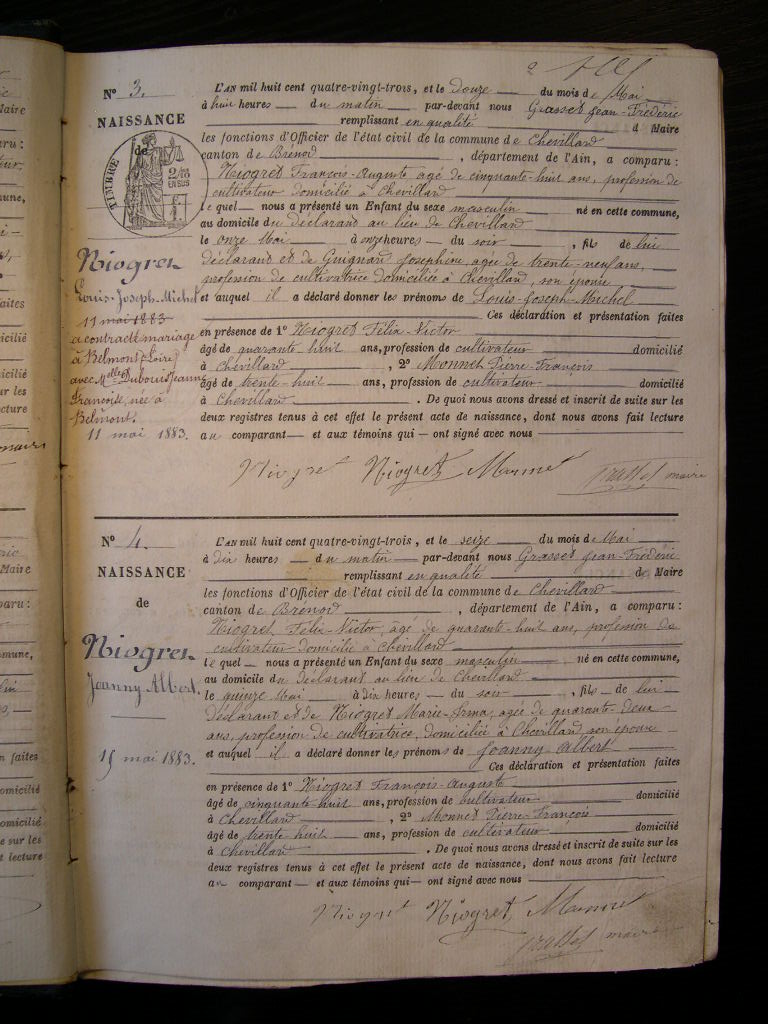 N° 3.
NAISSANCE
de
TIMBRE
Niogret
Louis-Joseph-Michel
11 mai 1883
a contracté mariage
à Belmont (Loire)
avec Melle Dubouis Jeanne
Françoise, née à
Belmont.
11 mai 1883.
L'AN mil huit cent quatre-vingt-trois, et le douze du mois de Mai
à huit heures du matin par-devant nous Grasset Jean-Frédéric
remplissant en qualité d Maire
les fonctions d'Officier de l'état civil de la commune de Chevillard
canton de Brénod, département de l'Ain, a comparu :
Niogret François-Auguste âgé de cinquante-huit ans, profession de
cultivateur domicilié à Chevillard
le quel nous a présenté un Enfant du sexe masculin né en cette commune,
au domicile du déclarant au lieu de Chevillard
le onze Mai à onze heures du soir, fils de lui
déclarant et de Guignard Josephine, agée de trente-neuf ans,
profession de cultivatrice domiciliée à Chevillard, son épouse
et auquel il a déclaré donner les prénoms de Louis-Joseph-Michel
Ces déclaration et présentation faites
en présence de 1° Niogret Félix-Victor
âgé de quarante huit ans, profession de cultivateur domicilié
à Chevillard, 2° Monnet Pierre-François
âgé de trente-huit ans, profession de cultivateur domicilié
à Chevillard. De quoi nous avons dressé et inscrit de suite sur les
deux registres tenus à cet effet le présent acte de naissance, dont nous avons fait lecture
au comparant et aux témoins qui ont signé avec nous
Niogret Niogret Monnet Grasset maire
N° 4.
NAISSANCE
de
Niogret
Jeanny Albert.
15 mai 1883.
L'AN mil huit cent quatre-vingt-trois, et le seize du mois de Mai
à dix heures du matin par-devant nous Grasset Jean-Frédéric
remplissant en qualité de Maire
les fonctions d'Officier de l'état civil de la commune de Chevillard
canton de Brénod, département de l'Ain, a comparu :
Niogret Félix-Victor, âgé de quarante-huit ans, profession de
cultivateur domicilié à Chevillard
le quel nous a présenté un Enfant du sexe masculin né en cette commune,
au domicile du déclarant au lieu de Chevillard
le quinze Mai à dix heures du soir, fils de lui
déclarant et de Niogret Marie-Irma, agée de quarante-deux
ans, profession de cultivatrice, domiciliée à Chevillard son épouse
et auquel il a déclaré donner les prénoms de Joanny Albert
Ces déclaration et présentation faites
en présence de 1° Niogret François-Auguste
âgé de cinquante-huit ans, profession de cultivateur domicilié
à Chevillard, 2° Monnet Pierre-François
âgé de trente huit ans, profession de cultivateur domicilié
à Chevillard. De quoi nous avons dressé et inscrit de suite sur les
deux registres tenus à cet effet le présent acte de naissance, dont nous avons fait lecture
au comparant et aux témoins qui ont signé avec nous
Niogret Niogret Monnet
Grasset maire